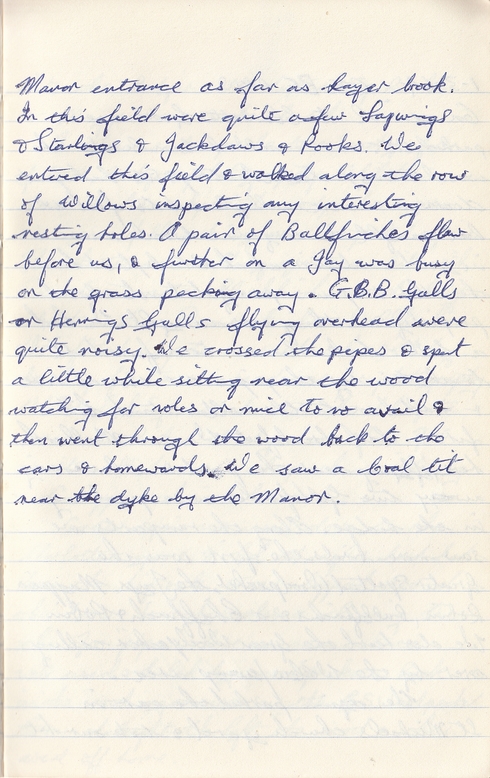 Manor entrance as far as Layer brook.
In this field were quite a few Lapwings
& Starlings & Jackdaws & Rooks. We
entered this field & walked along the row
of Willows inspecting any interesting
nesting holes. A pair of Bullfinches flew
before us, & further on a Jay was busy
on the grass pecking away. G.B.B. Gulls
or Herrings Gulls flying overhead were
quite noisy. We crossed the pipes & spent
a little while sitting near the wood
watching for voles or mice to no avail &
then went through the wood back to the
cars & homewards. We saw a Coal tit
near the dyke by the Manor.